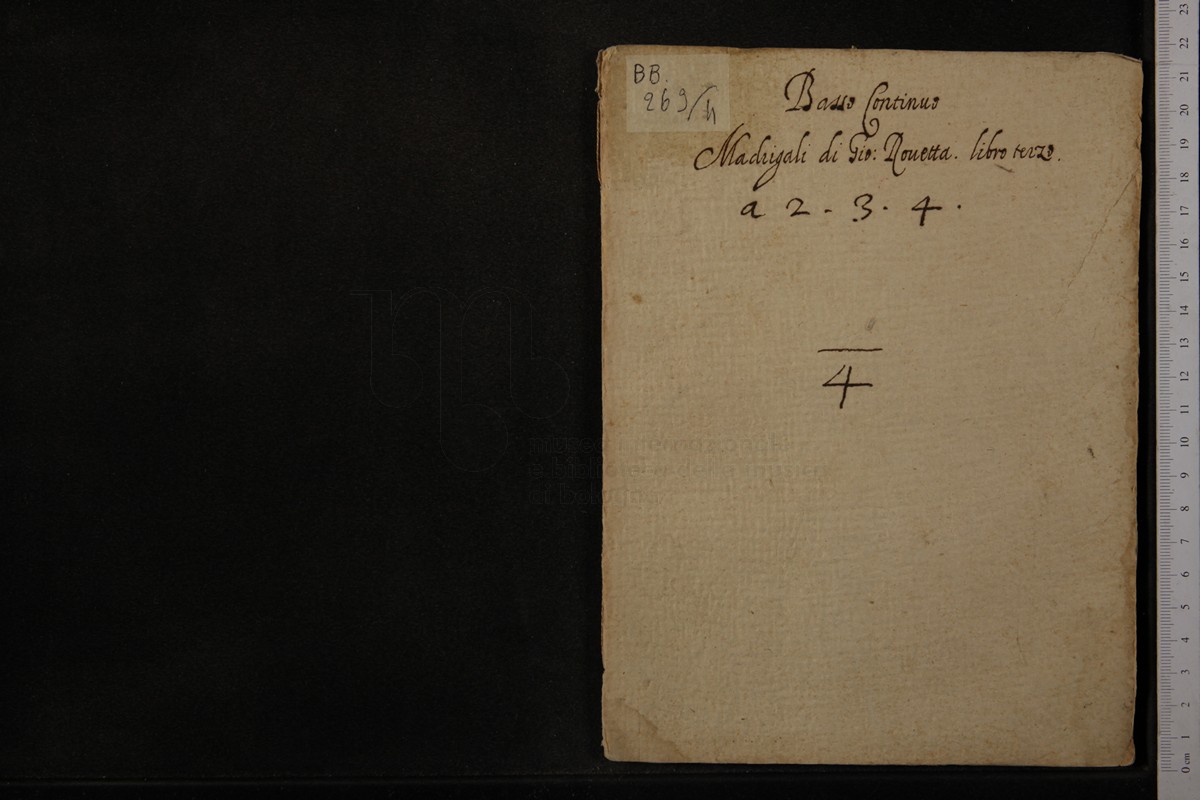 BB.
269/4
Basso Continuo
Madrigali di Gio: Rouetta. libro terzo.
a 2. 3. 4.
4
23
22
21
20
19
18
17
16
15
14
13
12
11
10
9
8
7
6
5
4
3
2
1
0 cm